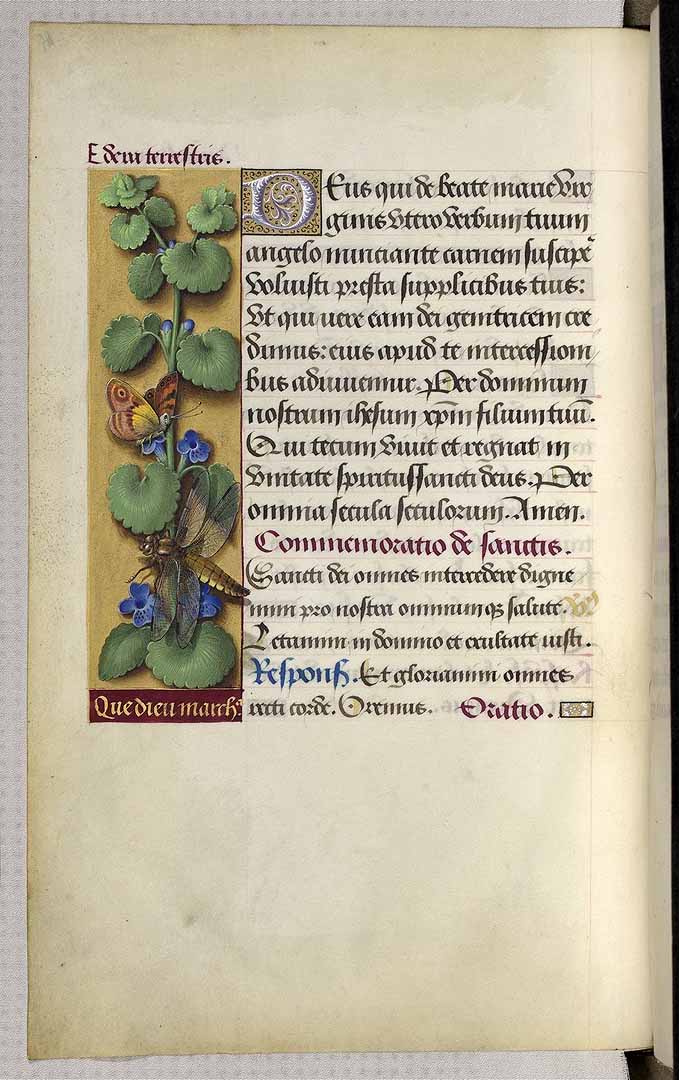 Edera terrestris.
Deus qui de beate marie vir
ginis vtero verbum tuum
angelo nunciante carnem suscipẽ
voluisti presta supplicibus tuis:
Vt qui uere eam dei genitricem cre
dimus: eius apud te intercessioni
bus adiuuemur. Per dominum
nostrum ihesum xp̃m filium tuũ.
Qui tecum viuit et regnat in
vnitate spiritussancti deus. Per
omnia secula seculorum. Amen.
Commemoratio de sanctis.
Sancti dei omnes intercedere digne
mini pro nostra omniumqꝫ salute.
Letamini in domino et exultate iusti.
Respons. Et gloriamini omnes
recti corde. Oremus. Oratio.
Que dieu march